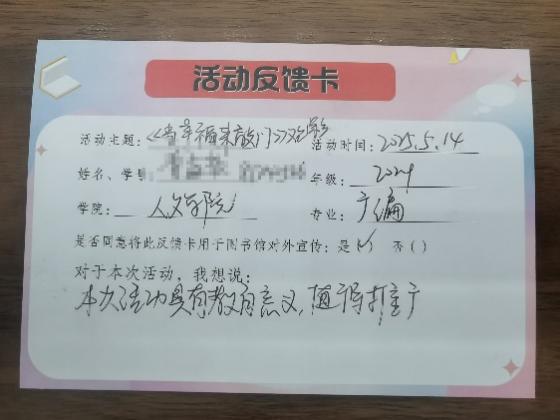 活动反馈卡
活动主题:《当幸福来敲门》观影 活动时间:2025.5.14
姓名、学号 年级:2024
学院:人文学院 专业:广编
是否同意将此反馈卡用于图书馆对外宣传:是(✓) 否( )
对于本次活动,我想说:
本次活动具有教育意义,值得推广